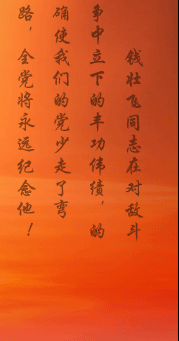 钱壮飞同志在对敌斗
争中立下的丰功伟绩，的
确使我们的党少走了弯
路，全党将永远纪念他！